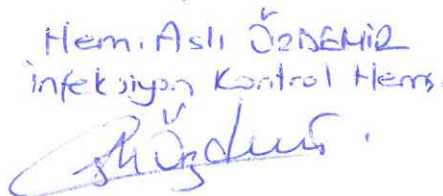 Hem. Aslı ÖZDEMİR
İnfeksiyon Kontrol Hemş.